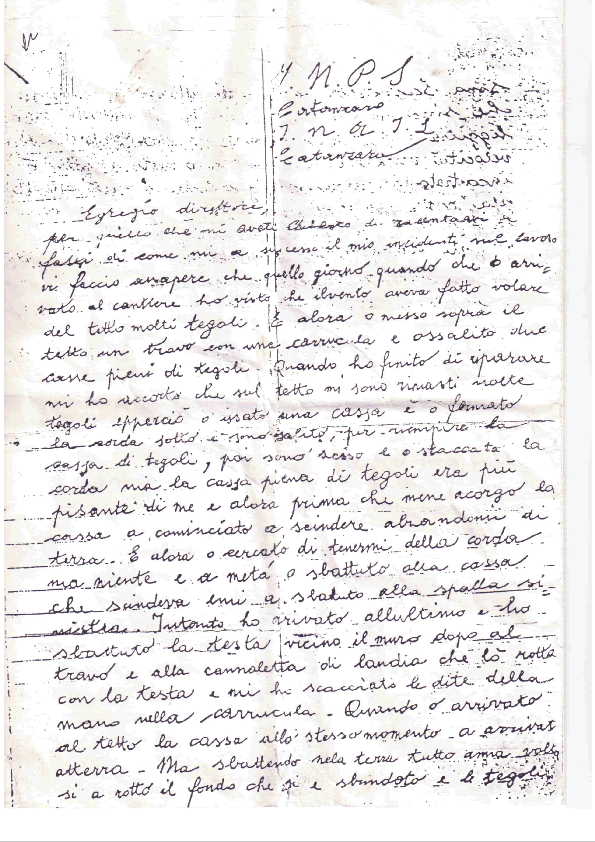 I N P S
Catanzaro
I N A I L
Catanzaro
Egregio direttore,
per quello che mi aveti chiesto di racontarvi i
fatti di come mi a sucesso il mio incidenti sul lavoro
vi faccio assapere che quello giorno quando che o arri-
vato al cantiere ho visto che ilvento aveva fatto volare
del tetto molti tegoli. E alora o messo soprà il
tetto un travo con una carrucula e ossalito due
casse pieni di tegoli. Quando ho finito di riparare
mi ho accorto che sul tetto mi sono rimasti molte
tegoli epperciò o issato una cassa e o fermato
la corda sotto e sono salito, per riempire la
cassa di tegoli, poi sono sceso e o staccato la
corda ma la cassa piena di tegoli era più
pisante di me e alora prima che mene acorgo la
cassa a cominciato a scindere abandonii di
terra. E alora o cercato di tenermi della corda
ma niente e a metá o sbattuto alla cassa
che scindeva emi a sbatuto alla spalla si-
nistra. Intanto ho rrivato allultimo e ho
sbattuto la testa vicino il muro dopo al
travo e alla cannaletta di landia che lò rotta
con la testa e mi ho scacciato le dite della
mano nella carrucula. Quando o arrivato
al tetto la cassa allo stesso momento a arrivat
atterra. Ma sbattendo nela terra tutto anna volta
si a rotto il fondo che si e sbundoto e le tegoli